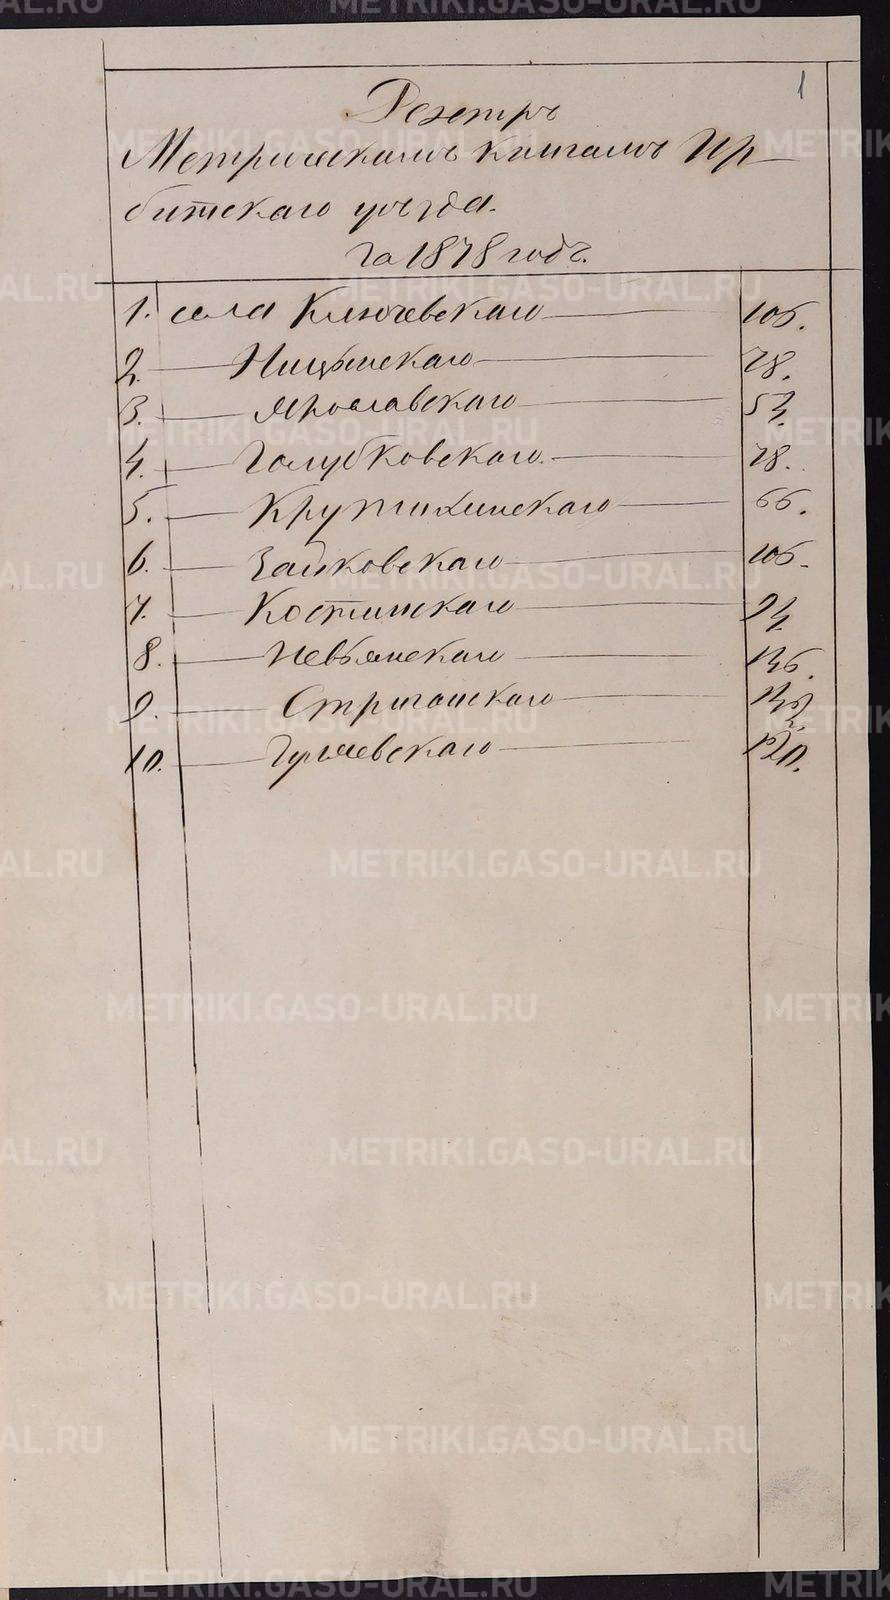 1
Реэстръ
Метрическимъ книгамъ Ир-
битскаго уѣзда.
За 1878 годъ.
1. села Ключевскаго — 106.
2. — Ницынскаго — 78.
3. — Ярославскаго — 54.
4. — Голубковскаго. — 78.
5. — Крутихинскаго — 66.
6. — Зайковскаго — 106.
7. — Костинскаго — 94.
8. — Невьянскаго — 136.
9. — Стриганскаго — 132.
10. — Гуляевскаго — 120.
METRIKI.GASO-URAL.RU